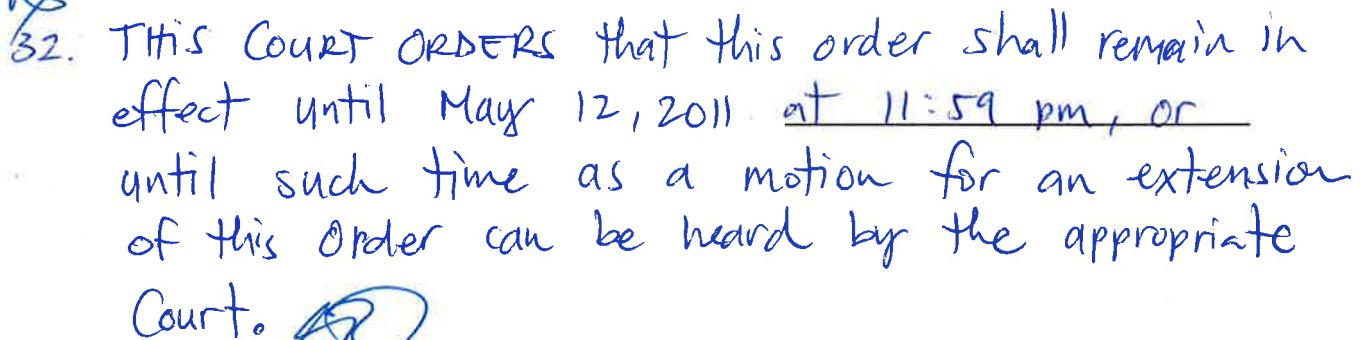 32. THIS COURT ORDERS that this order shall remain in
effect until May 12, 2011 at 11:59 pm, or
until such time as a motion for an extension
of this Order can be heard by the appropriate
Court.